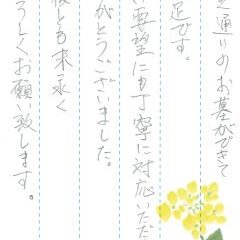 通りのお墓ができて
足です。
要望にも丁寧に対応いただ
がとうございました。
とも末永く
ろしくお願い致します。